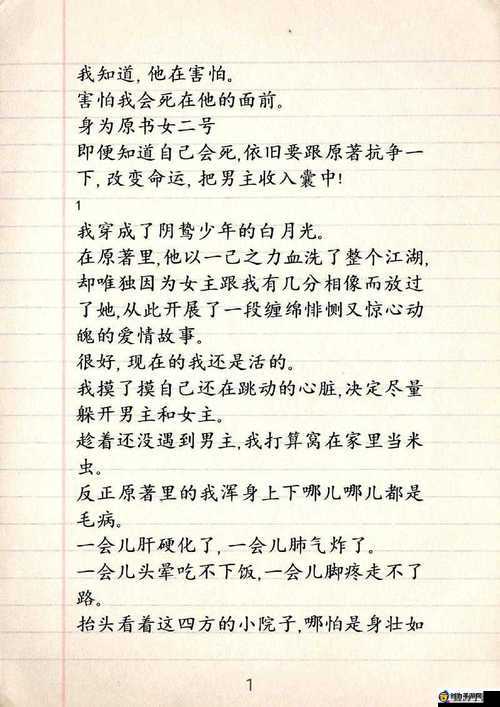 我知道,他在害怕。
害怕我会死在他的面前。
身为原书女二号
即便知道自己会死,依旧要跟原著抗争一
下,改变命运,把男主收入囊中!
1
我穿成了阴鸷少年的白月光。
在原著里,他以一己之力血洗了整个江湖,
却唯独因为女主跟我有几分相像而放过
了她,从此开展了一段缠绵悱恻又惊心动
魄的爱情故事。
很好,现在的我还是活的。
我摸了摸自己还在跳动的心脏,决定尽量
躲开男主和女主。
趁着还没遇到男主,我打算窝在家里当米
虫。
反正原著里的我浑身上下哪儿哪儿都是
毛病。
一会儿肝硬化了,一会儿肺气炸了。
一会儿头晕吃不下饭,一会儿脚疼走不了
路。
抬头看着这四方的小院子,哪怕是身壮如
1